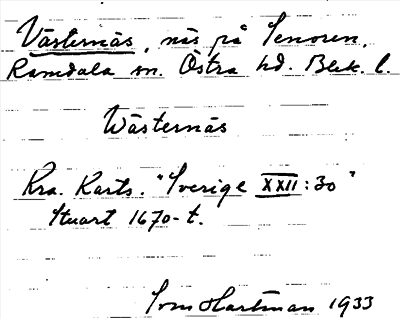 Västernäs, näs på Senoren.
Ramdala sn. Östra hd. Blek. l.
Wästernäs
Kra. Karts. "Sverige XXII:30"
Stuart 1670-t.
Hartman 1933